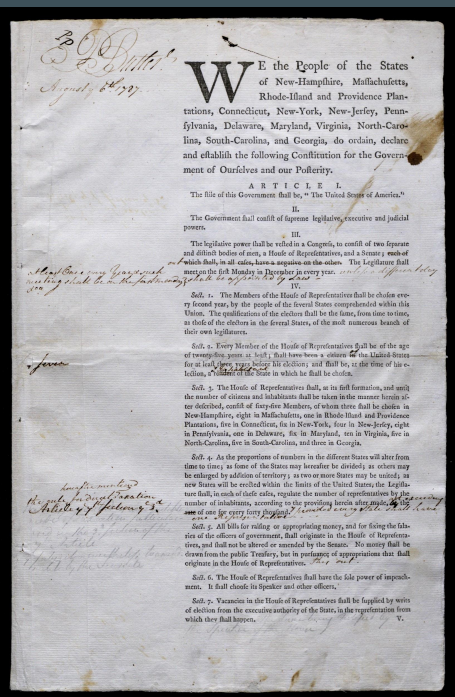 P. Butler
August 6th 1787.
WE the People of the States
of New-Hampshire, Massachusetts,
Rhode-Island and Providence Plan-
tations, Connecticut, New-York, New-Jersey, Penn-
sylvania, Delaware, Maryland, Virginia, North-Caro-
lina, South-Carolina, and Georgia, do ordain, declare
and establish the following Constitution for the Govern-
ment of Ourselves and our Posterity.
ARTICLE I.
The stile of this Government shall be, " The United States of America."
II.
The Government shall consist of supreme legislative, executive and judicial
powers.
III.
The legislative power shall be vested in a Congress, to consist of two separate
and distinct bodies of men, a House of Representatives, and a Senate; each of
which shall, in all cases, have a negative on the other. The Legislature shall
out
meet on the first Monday in December in every year. unless a different day
shall be appointed by Law
at least Once in every Year & such
meeting shall be on the first monday
IV.
Sect. 1. The Members of the House of Representatives shall be chosen eve-
ry second year, by the people of the several States comprehended within this
Union. The qualifications of the electors shall be the same, from time to time,
as those of the electors in the several States, of the most numerous branch of
their own legislatures.
Sect. 2. Every Member of the House of Representatives shall be of the age
of twenty-five years at least; shall have been a citizen of the United States
seven
for at least three years before his election; and shall be, at the time of his e-
lection, a resident of the State in which he shall be chosen.
Sect. 3. The House of Representatives shall, at its first formation, and until
the number of citizens and inhabitants shall be taken in the manner herein af-
ter described, consist of sixty-five Members, of whom three shall be chosen in
New-Hampshire, eight in Massachusetts, one in Rhode-Island and Providence
Plantations, five in Connecticut, six in New-York, four in New-Jersey, eight
in Pennsylvania, one in Delaware, six in Maryland, ten in Virginia, five in
North-Carolina, five in South-Carolina, and three in Georgia.
Sect. 4. As the proportions of numbers in the different States will alter from
time to time; as some of the States may hereafter be divided; as others may
be enlarged by addition of territory; as two or more States may be united; as
new States will be erected within the limits of the United States, the Legisla-
ture shall, in each of these cases, regulate the number of representatives by the
number of inhabitants, according to the provisions herein after made, at the
rate of one for every forty thousand. provided every State shall have
one representative
the rule for direct taxation
Article 7 section 3
Sect. 5. All bills for raising or appropriating money, and for fixing the sala-
ries of the officers of government, shall originate in the House of Representa-
tives, and shall not be altered or amended by the Senate. No money shall be
drawn from the public Treasury, but in pursuance of appropriations that shall
originate in the House of Representatives. out
Sect. 6. The House of Representatives shall have the sole power of impeach-
ment. It shall choose its Speaker and other officers.
Sect. 7. Vacancies in the House of Representatives shall be supplied by writs
of election from the executive authority of the State, in the representation from
which they shall happen.
V.